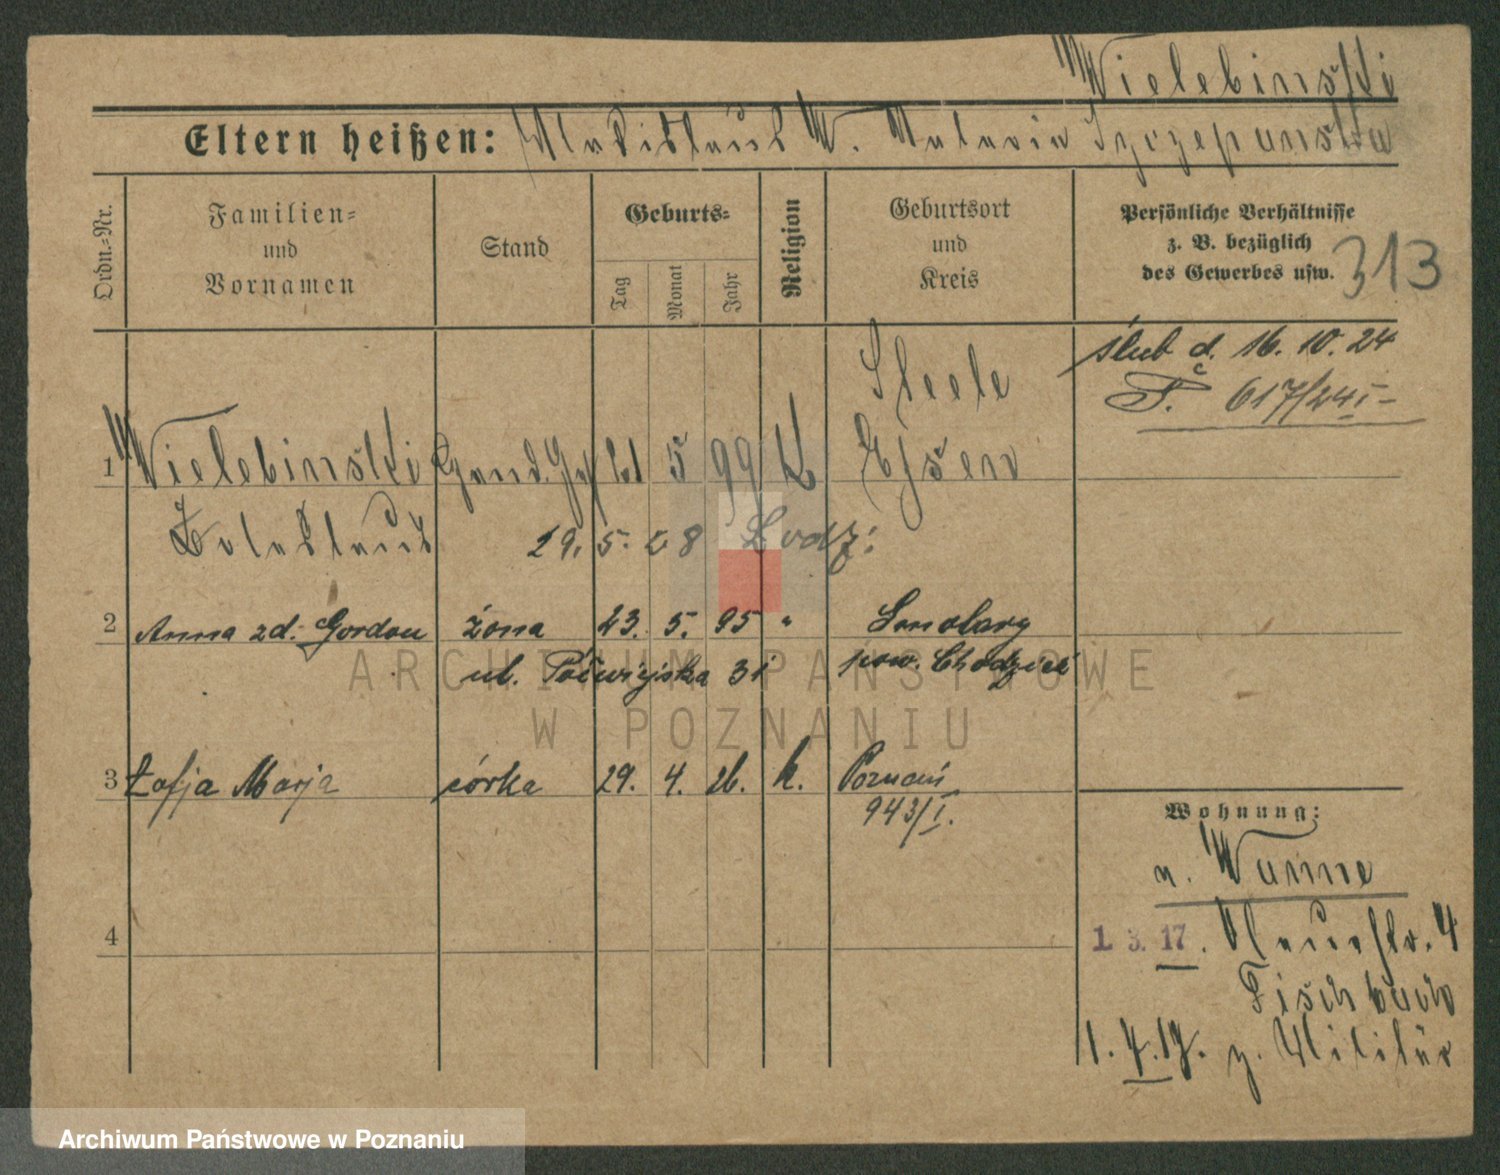 Wielebinski
Eltern heißen: Wladislaus W. Valeria Szczepanska
Ordn.=Nr.
Familien=
und
Vornamen
Stand
Geburts=
Tag
Monat
Jahr
Religion
Geburtsort
und
Kreis
Persönliche Verhältnisse
z. B. bezüglich
des Gewerbes usw.
313
ślub d. 16. 10. 24
617/24 I
Steele
1 Wielebinski 21 5 99 K Essen
Boleslaus
29. 5. 28 Łodz:
2 Anna zd. Gordon żona 23. 5. 95 "
ul. 31 pow. Chodzież
3 Zofja Marja córka 29. 4. 26. k. Poznań
943/I.
4
Wohnung:
n. Wanne
1. 3. 17. 4
Fischbach
1. 4. 17. z. Militär
ARCHIWUM PAŃSTWOWE
W POZNANIU
Archiwum Państwowe w Poznaniu